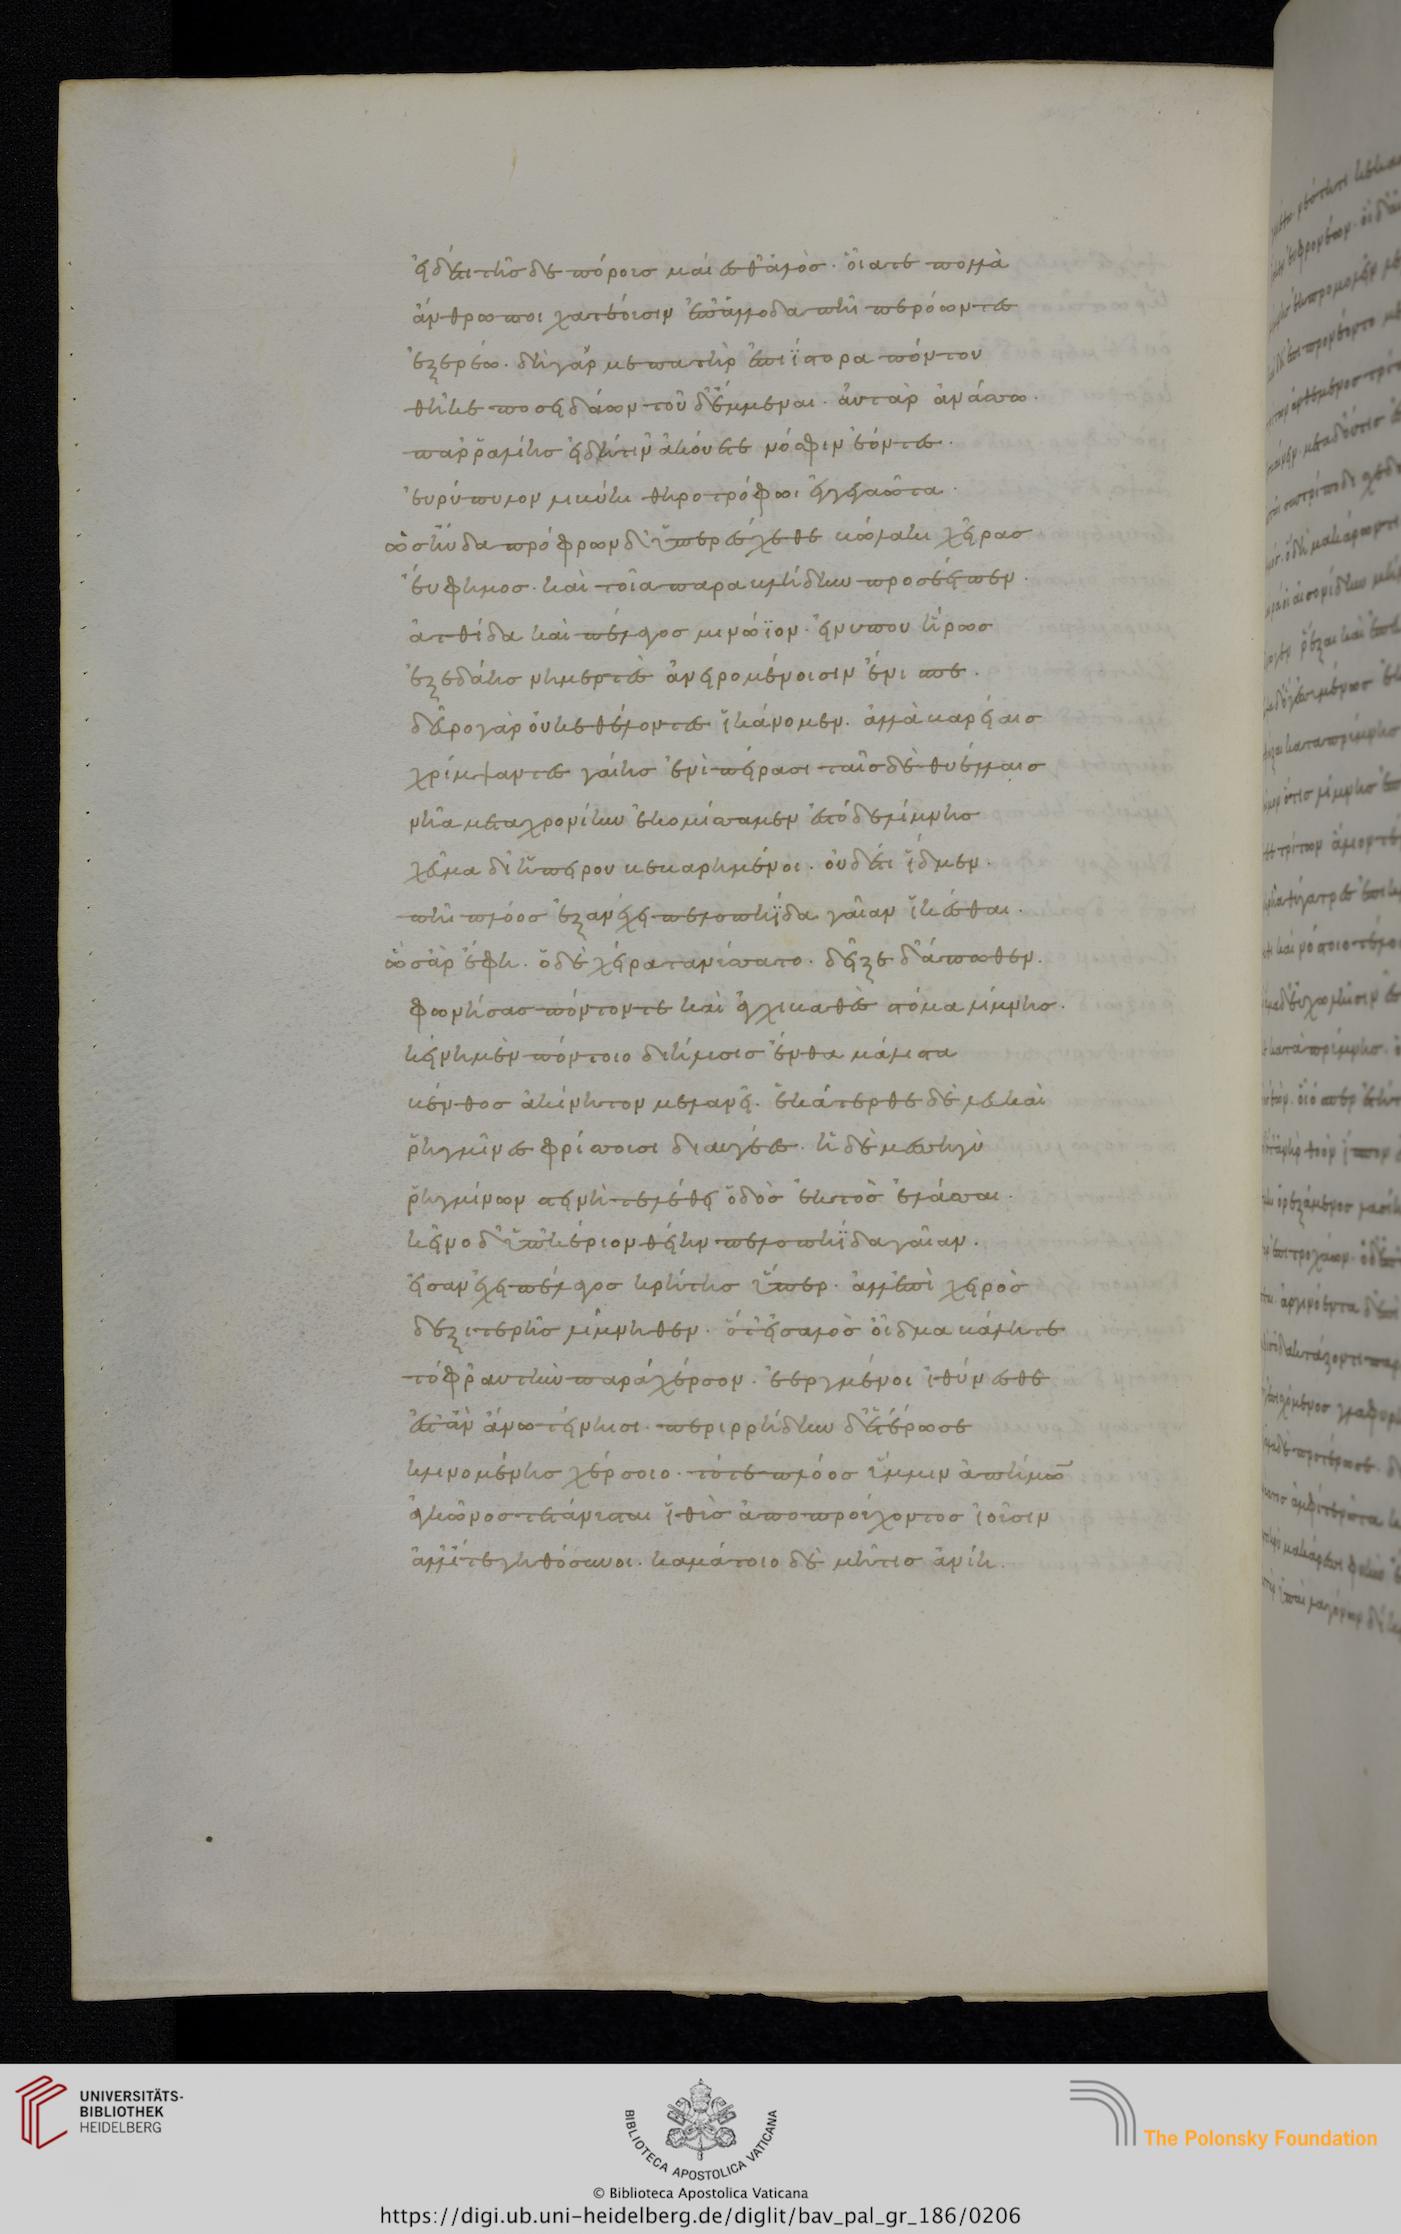 εἰ δέτι τῆσδε πόρους μαίεσθ' ἁλὸς. οἷά τε πολλὰ
ἄνθρωποι χατέουσιν ἐπ' ἀλλοδαπῆ περόωντες
ἐξερέω. δὴ γάρ με πατὴρ ἐπιΐστορα πόντου
θῆκε ποσειδάων τοῦ δ' ἔμμεναι. αὐτὰρ ἀνάσσω.
παρῤαλίης εἰ δή τιν' ἀκούετε νόσφιν ἐόντες.
εὐρύπυλον λιβύη θηροτρόφωι ἐγγεγαῶτα.
ὣς ηὔδα πρόφρων δ' ὑπερέσχεθε βώλακι χεῖρας
εὔφημος. καὶ τοῖα παραβλήδην προσέειπεν.
ἀτθίδα καὶ πέλαγος μινώϊον. εἴ νυ που ἥρως
ἐξεδάης νημερτὲς ἀνειρομένοισιν ἔνισπε.
δεῦρο γὰρ οὐκ ἐθέλοντες ἱκάνομεν. ἀλλὰ βαρείαις
χρίμψαντες γαίης ἐνὶ πείρασι ταῖσδε θυέλλαις
νῆα μεταχρονίην ἐκομίσσαμεν ἐς τόδε λίμνης
χεῦμα δι' ἠπείρου βεβαρημένοι. οὐδέ τι ἴδμεν.
πῆ πλόος ἐξανέχει πελοπηΐδα γαῖαν ἱκέσθαι.
ὣς ἄρ' ἔφη. ὁ δὲ χεῖρα τανύσσατο. δεῖξε δ' ἄπωθεν.
φωνήσας πόντον τε καὶ ἀγχιβαθὲς στόμα λίμνης.
κείνη μὲν πόντοιο διήλυσις ἔνθα μάλιστα
βένθος ἀκίνητον μελανεῖ. ἑκάτερθε δὲ λευκαὶ
ῥηγμῖνες φρίσσουσι διαυγέες. ἡ δὲ μεσηγὺ
ῥηγμίνων στεινὴ τελέθει ὁδὸς ἐκτὸς ἐλάσσαι.
κεῖνο δ' ὑπηέριον θείην πελοπηΐδα γαῖαν.
εἰσανέχει πέλαγος κρήτης ὕπερ. ἀλλ' ἐπὶ χειρὸς
δεξιτερῆς λίμνηθεν. ὅτ' εἰς ἁλὸς οἶδμα βάλητε
τόφρ' αὐτὴν παρὰ χέρσον. ἐεργμένοι ἰθύνεσθε
ἔστ' ἂν ἄνω τείνησι. περιρρήδην δ' ἑτέρωσε
κλινομένης χέρσοιο. τότε πλόος ὔμμιν ἀπήμων
ἀγκῶνος τετάνυσται ἰθὺς ἀπο προύχοντος ἰοῦσιν
ἀλλ' ἴτε γηθόσυνοι. καμάτοιο δὲ μήτις ἀνίη.
UNIVERSITÄTS-
BIBLIOTHEK
HEIDELBERG
BIBLIOTECA APOSTOLICA VATICANA
The Polonsky Foundation
© Biblioteca Apostolica Vaticana
https://digi.ub.uni-heidelberg.de/diglit/bav_pal_gr_186/0206